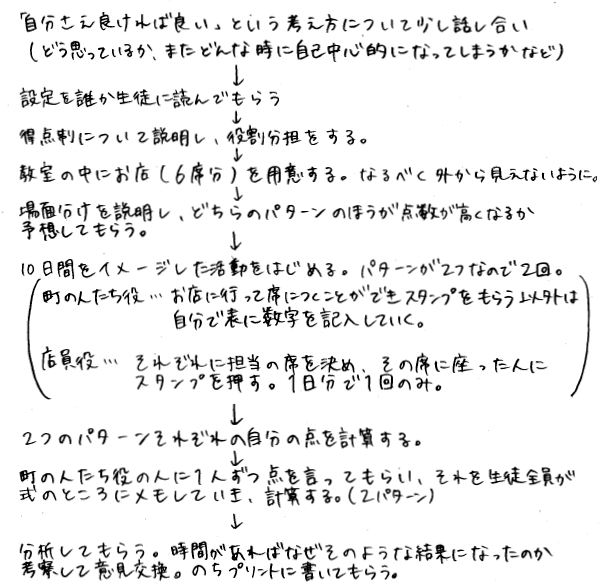 「自分さえ良ければ良い」という考え方について少し話し合い
(どう思っているか、またどんな時に自己中心的になってしまうかなど)
↓
設定を誰か生徒に読んでもらう
↓
得点制について説明し、役割分担をする。
↓
教室の中にお店(6席分)を用意する。なるべく外から見えないように。
↓
場面分けを説明し、どちらのパターンのほうが点数が高くなるか
予想してもらう。
↓
10日間をイメージした活動をはじめる。パターンが2つなので2回。
(町の人たち役… お店に行って席につくことができスタンプをもらう以外は
自分で表に数字を記入していく。
店員役… それぞれに担当の席を決め、その席に座った人に
スタンプを押す。1日分で1回のみ。)
↓
2つのパターンそれぞれの自分の点を計算する。
↓
町の人たち役の人に1人ずつ点を言ってもらい、それを生徒全員が
式のところにメモしていき、計算する。(2パターン)
↓
分析してもらう。時間があればなぜそのような結果になったのか
考察して意見交換。のちプリントに書いてもらう。